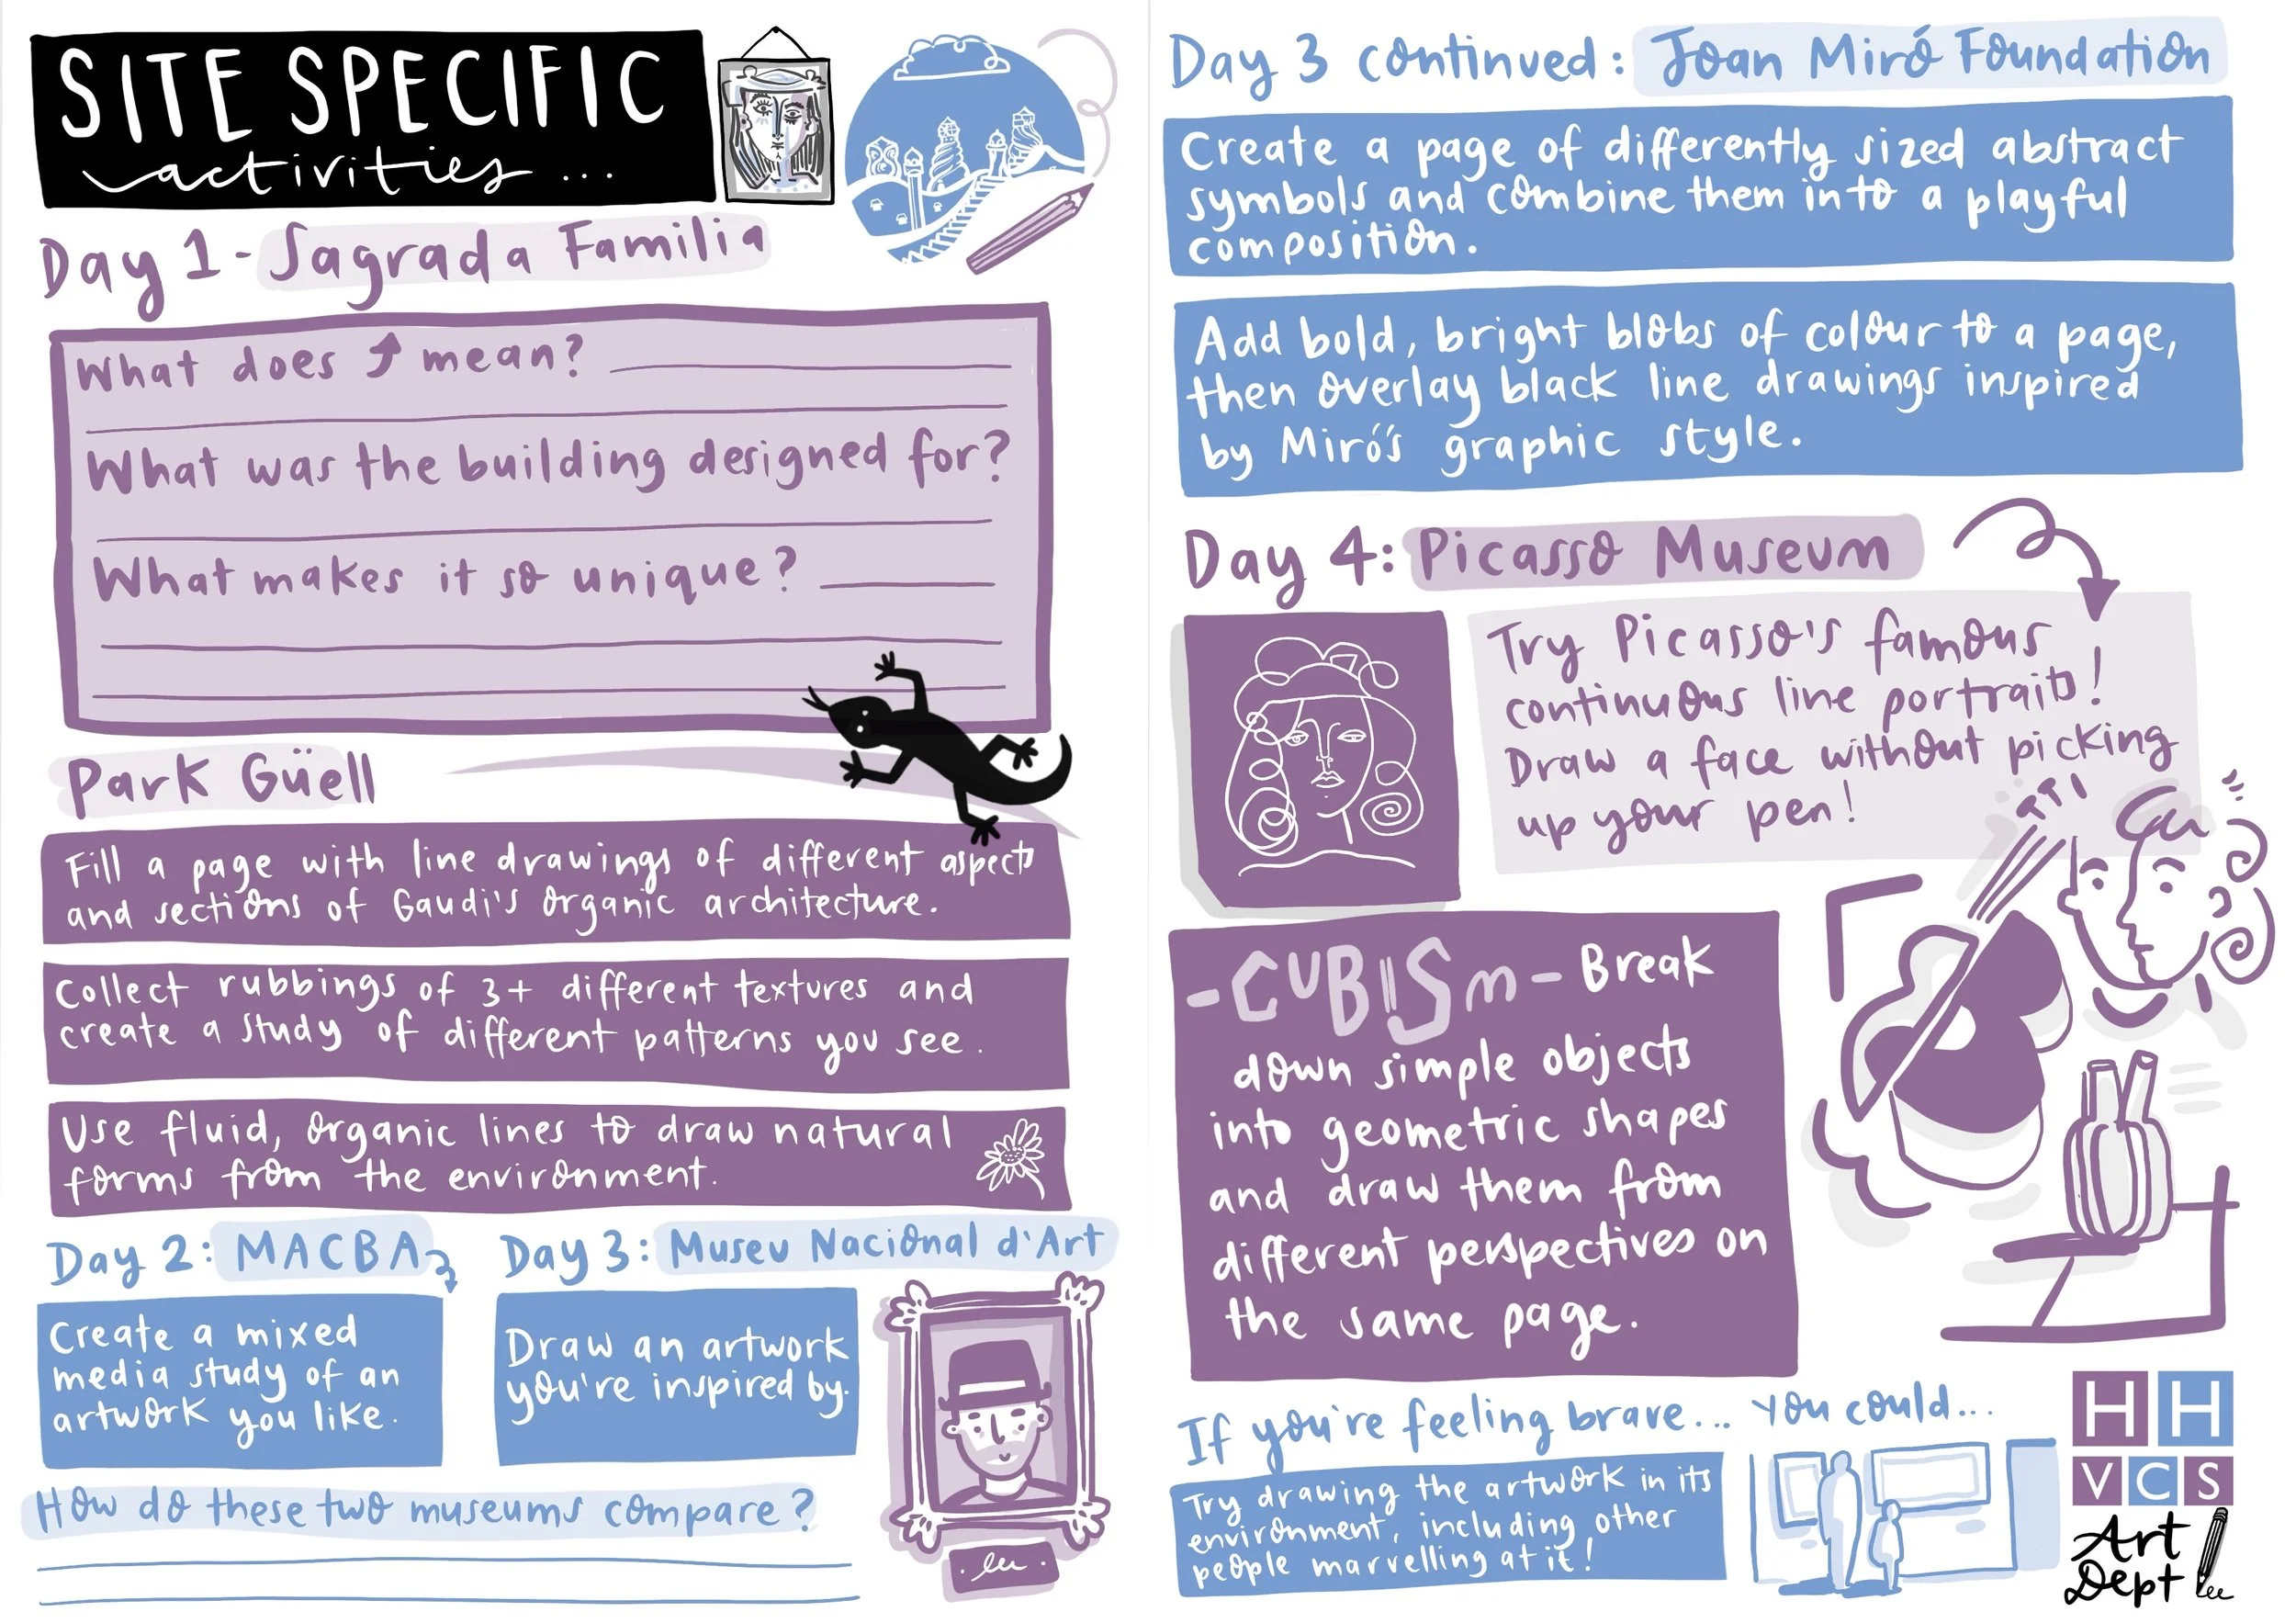 SITE SPECIFIC
activities...
Day 1 - Sagrada Familia
What does ⤴ mean?
What was the building designed for?
What makes it so unique?
Park Güell
Fill a page with line drawings of different aspects
and sections of Gaudi's organic architecture.
Collect rubbings of 3+ different textures and
create a study of different patterns you see.
Use fluid, organic lines to draw natural
forms from the environment.
Day 2: MACBA
Create a mixed
media study of an
artwork you like.
Day 3: Museu Nacional d'Art
Draw an artwork
you're inspired by.
How do these two museums compare?
Day 3 continued: Joan Miró Foundation
Create a page of differently sized abstract
symbols and combine them into a playful
composition.
Add bold, bright blobs of colour to a page,
then overlay black line drawings inspired
by Miró's graphic style.
Day 4: Picasso Museum
Try Picasso's famous
continuous line portraits!
Draw a face without picking
up your pen!
- CUBISm - Break
down simple objects
into geometric shapes
and draw them from
different perspectives on
the same page.
If you're feeling brave... you could...
Try drawing the artwork in its
environment, including other
people marvelling at it!
HH
VCS
Art
Dept